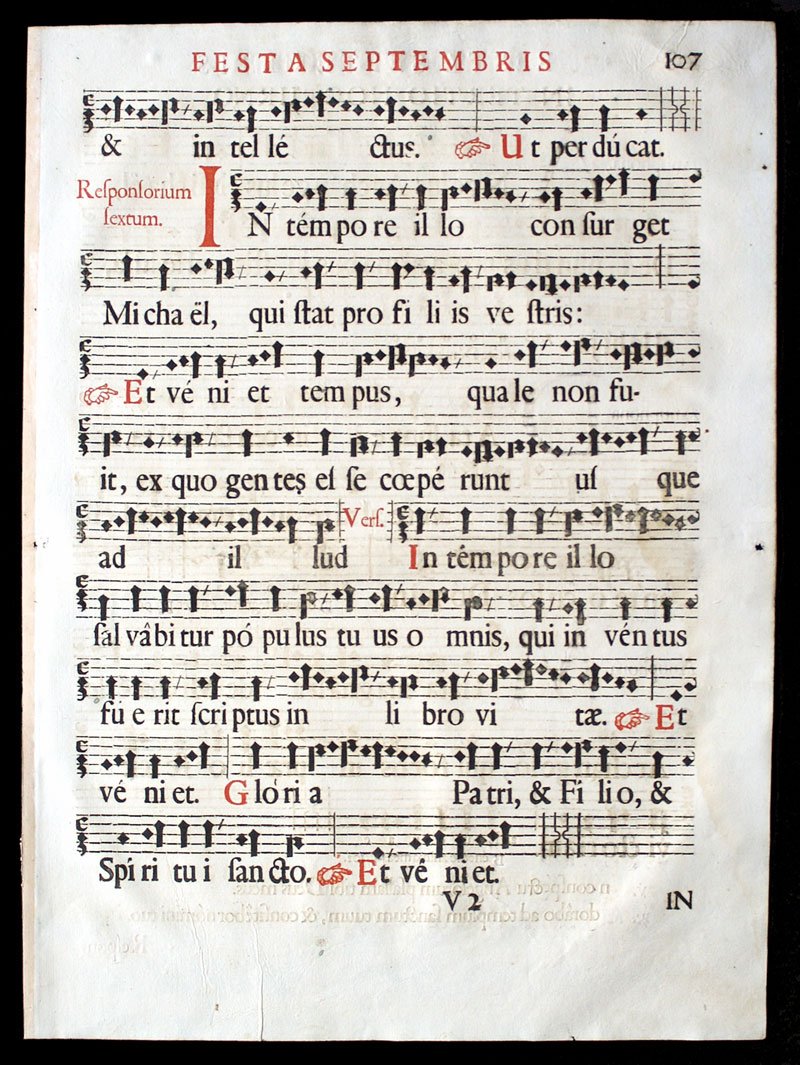 FESTA SEPTEMBRIS 107
& in tel lé ctus. Ut per dú cat.
Reſponſorium
ſextum.
IN tém po re il lo con ſur get
Mi cha ël, qui ſtat pro fi li is ve ſtris:
Et vé ni et tem pus, qua le non fu-
it, ex quo gen tes eſ ſe cœ pé runt uſ que
ad il lud Verſ. In tém po re il lo
ſal vâ bi tur pó pu lus tu us o mnis, qui in vén tus
fú e rit ſcri ptus in li bro vi tæ. Et
vé ni et. Gló ri a Pa tri, & Fí li o, &
Spi rí tu i ſan cto. Et vé ni et.
V 2 IN